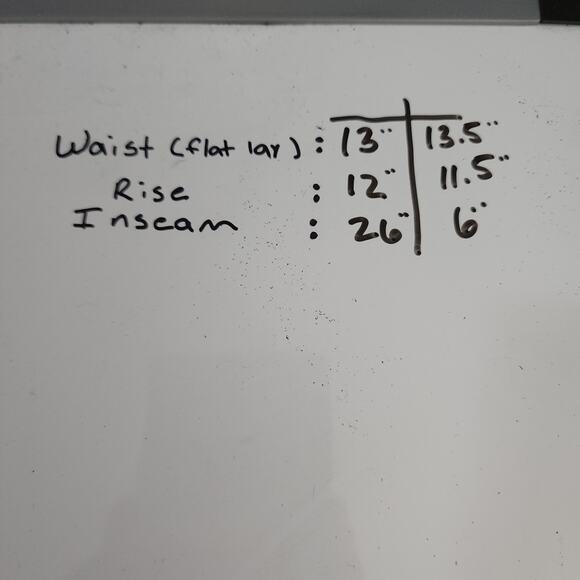 Waist (flat lay) : 13" 13.5"
Rise : 12" 11.5"
Inseam : 26" 6"